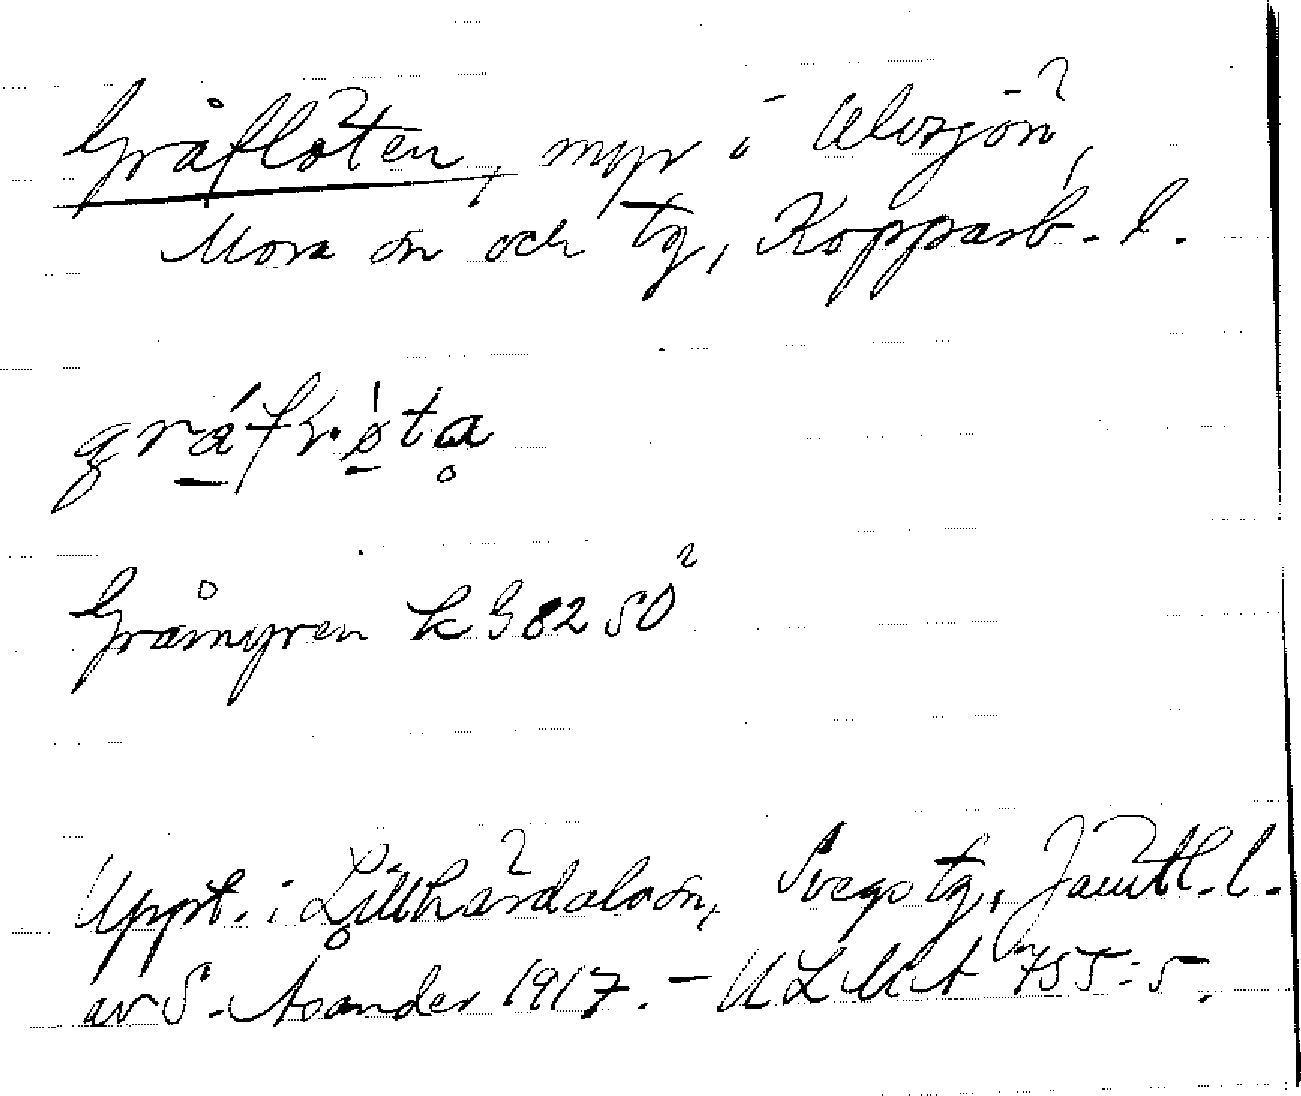 Gråflöten, myr i Älvsjön,
Mora sn och tg, Kopparb. l.
Gråmyren kG8250²
Uppt. i Lillhärdals sn, Svegs tg, Jämtl. l.
av S. Åsander 1917. – ULMA 755:5.